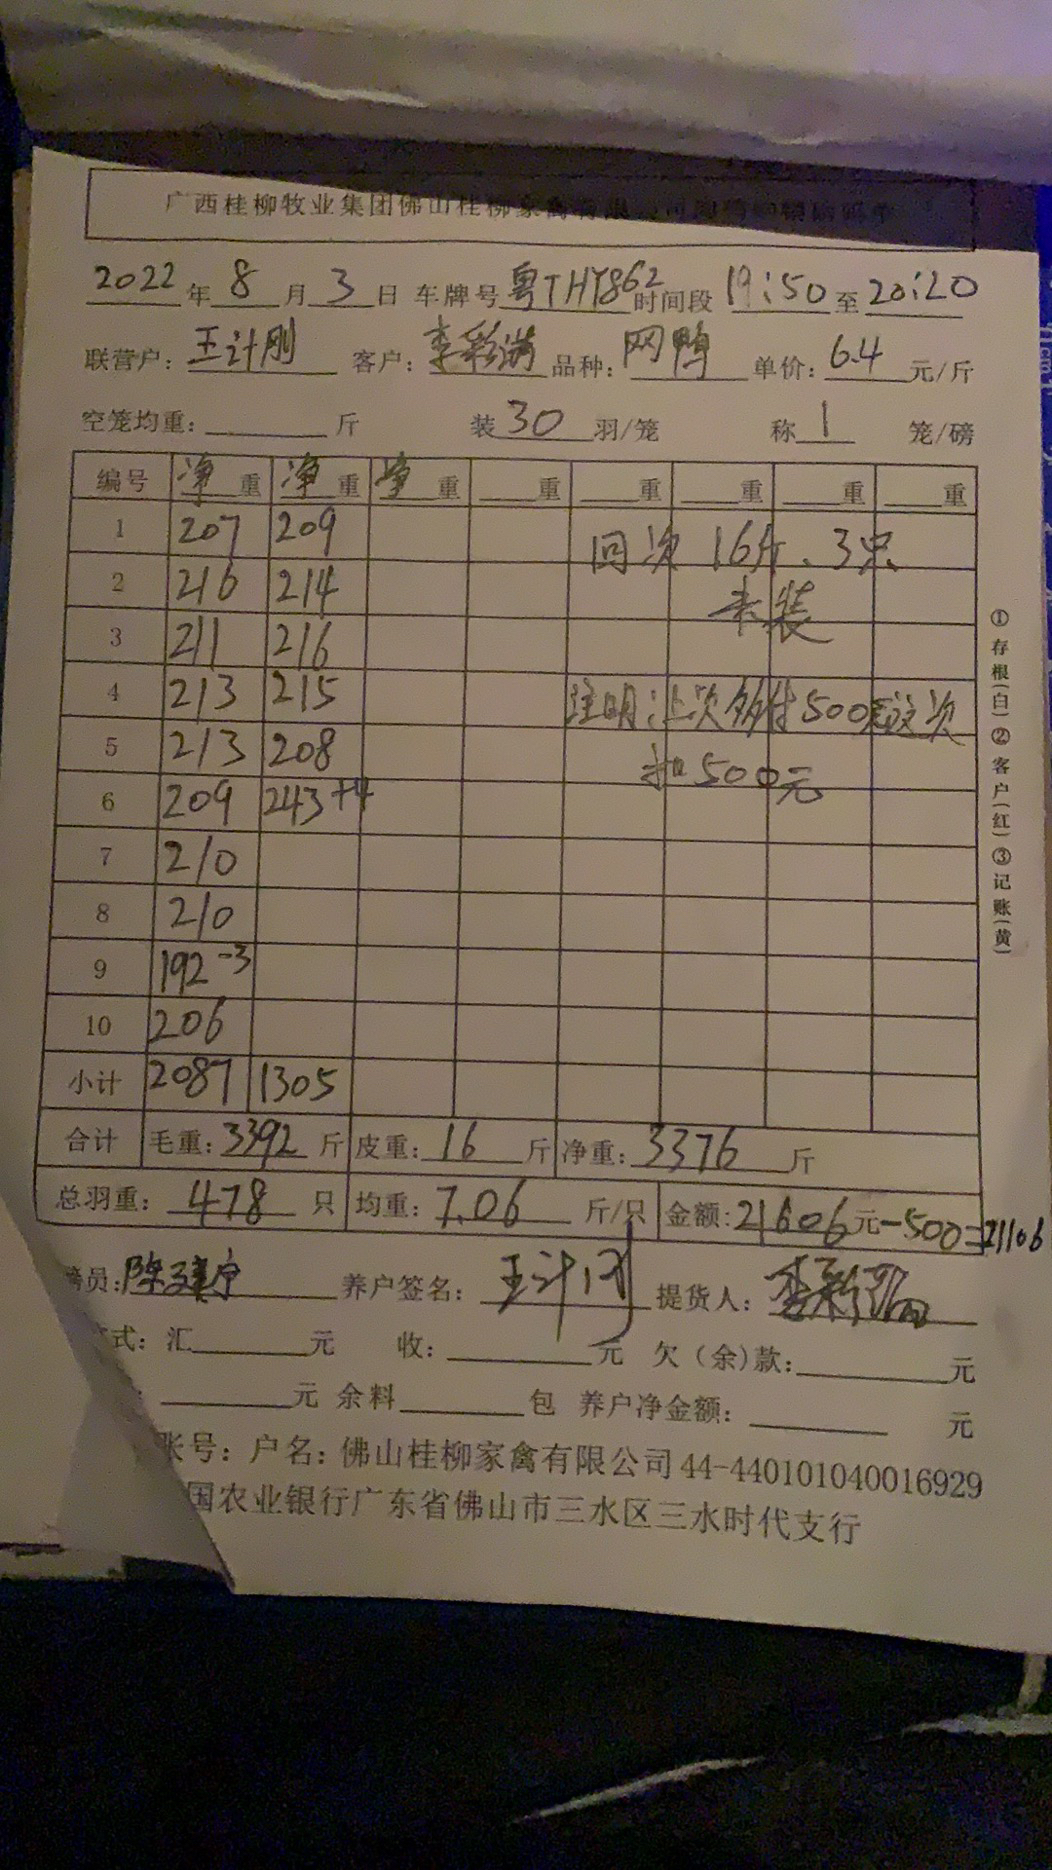 广西桂柳牧业集团佛山桂柳家禽有限公司
2022年8月3日 车牌号粤THY862时间段19:50至20:20
联营户:王计刚 客户:李彩满 品种:网鸭 单价:6.4元/斤
空笼均重:斤 装30羽/笼 称1笼/磅
编号 净重 净重 净重 重 重 重 重 重
1 207 209 回次 16斤、3只
2 216 214 未装
3 211 216
4 213 215 注明:上次多付500元这次
5 213 208 扣500元
6 209 243+4
7 210
8 210
9 192-3
10 206
小计 2087 1305
合计 毛重:3392斤 皮重:16斤 净重:3376斤
总羽重:478只 均重:7.06斤/只 金额:21606元-500=21106
员: 养户签名:王计刚 提货人:李彩满
式:汇元 收:元 欠(余)款:元
元 余料包 养户净金额:元
账号:户名:佛山桂柳家禽有限公司44-440101040016929
国农业银行广东省佛山市三水区三水时代支行
①存根(白)②客户(红)③记账(黄)